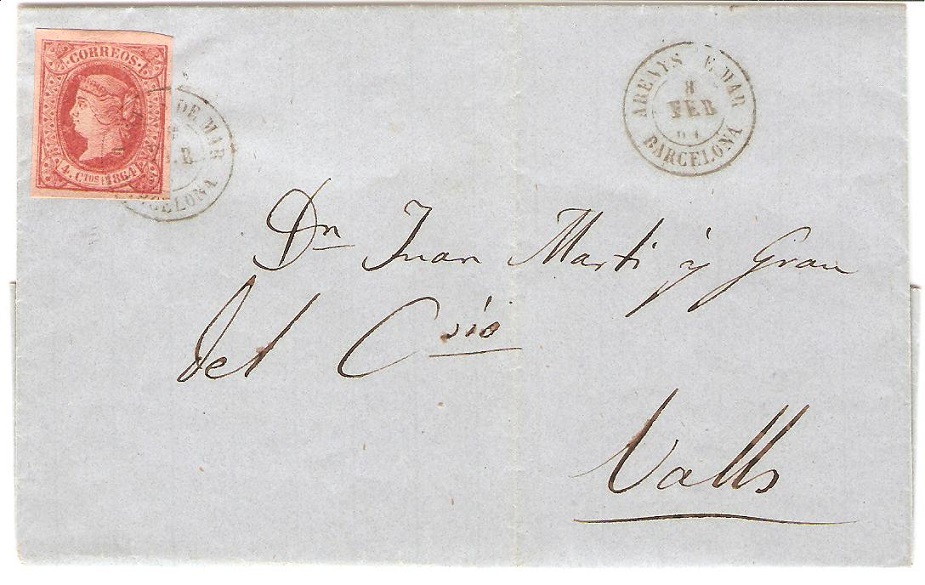 CORREOS.
4. Ctos 1864
DE MAR
BARCELONA
ARENYS E MAR
8
FEB
64
BARCELONA
Dn Juan Marti y Grau
del Csio
Valls